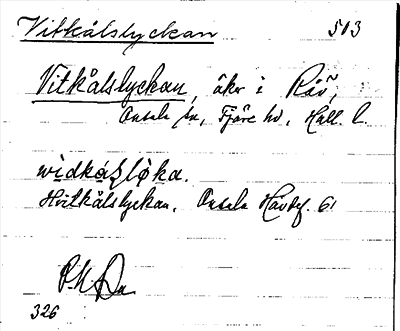 Vitkålslyckan 513
Vitkålslyckan, åkr i Råö,
Onsala sn, Fjäre hd, Hall. l.
widkåsļløka.
Hvitkålslyckan. Onsala Havdef. 61
326